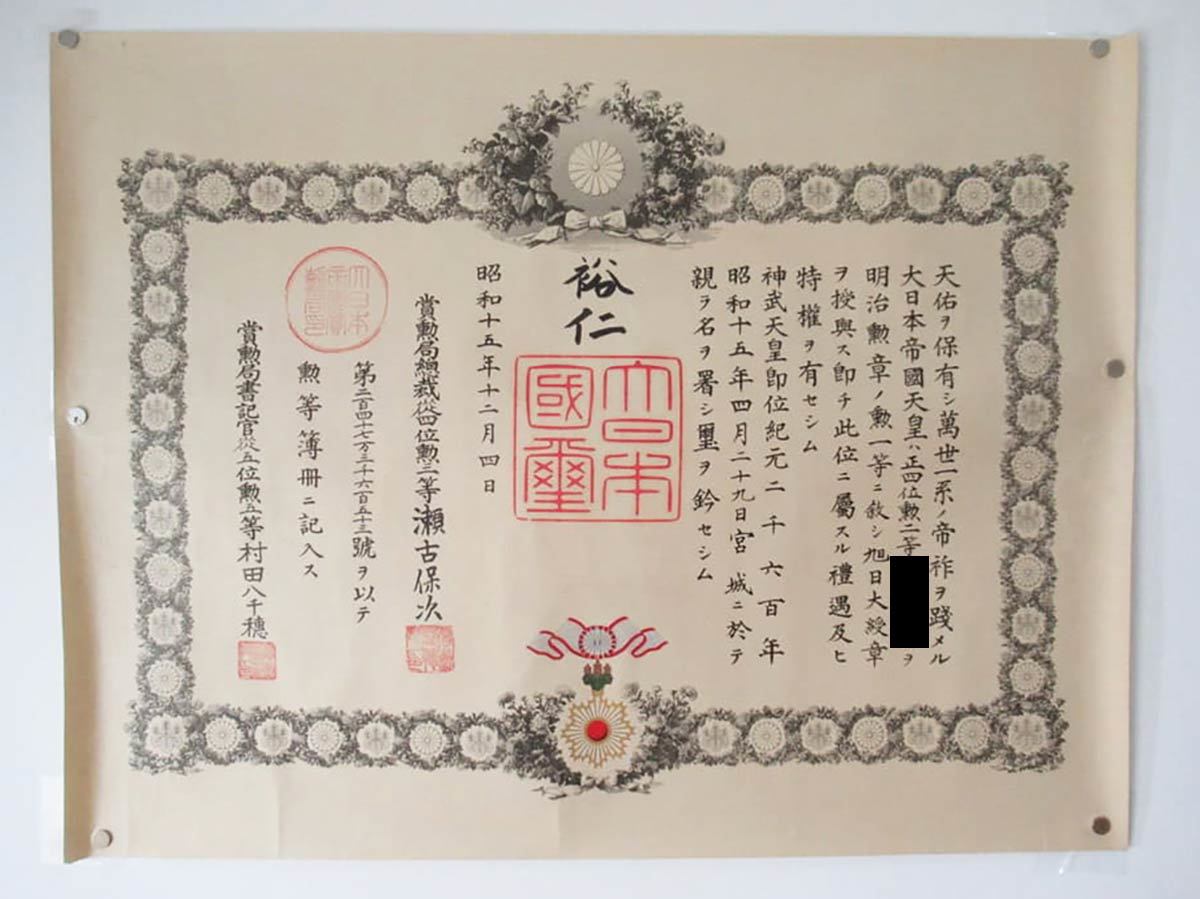 天佑ヲ保有シ萬世一系ノ帝祚ヲ踐メル
大日本帝國天皇ハ正四位勲二等ヲ
明治勲章ノ勲一等ニ敘シ旭日大綬章
ヲ授與ス即チ此位ニ屬スル禮遇及ヒ
特權ヲ有セシム
神武天皇即位紀元二千六百年
昭和十五年四月二十九日宮城ニ於テ
親ラ名ヲ署シ璽ヲ鈐セシム
裕仁
大日本國璽
昭和十五年十二月四日
賞勲局總裁從四位勲三等瀬古保次
第二百四十七万三千六百五十三號ヲ以テ
勲等簿冊ニ記入ス
賞勲局書記官從五位勲五等村田八千穗